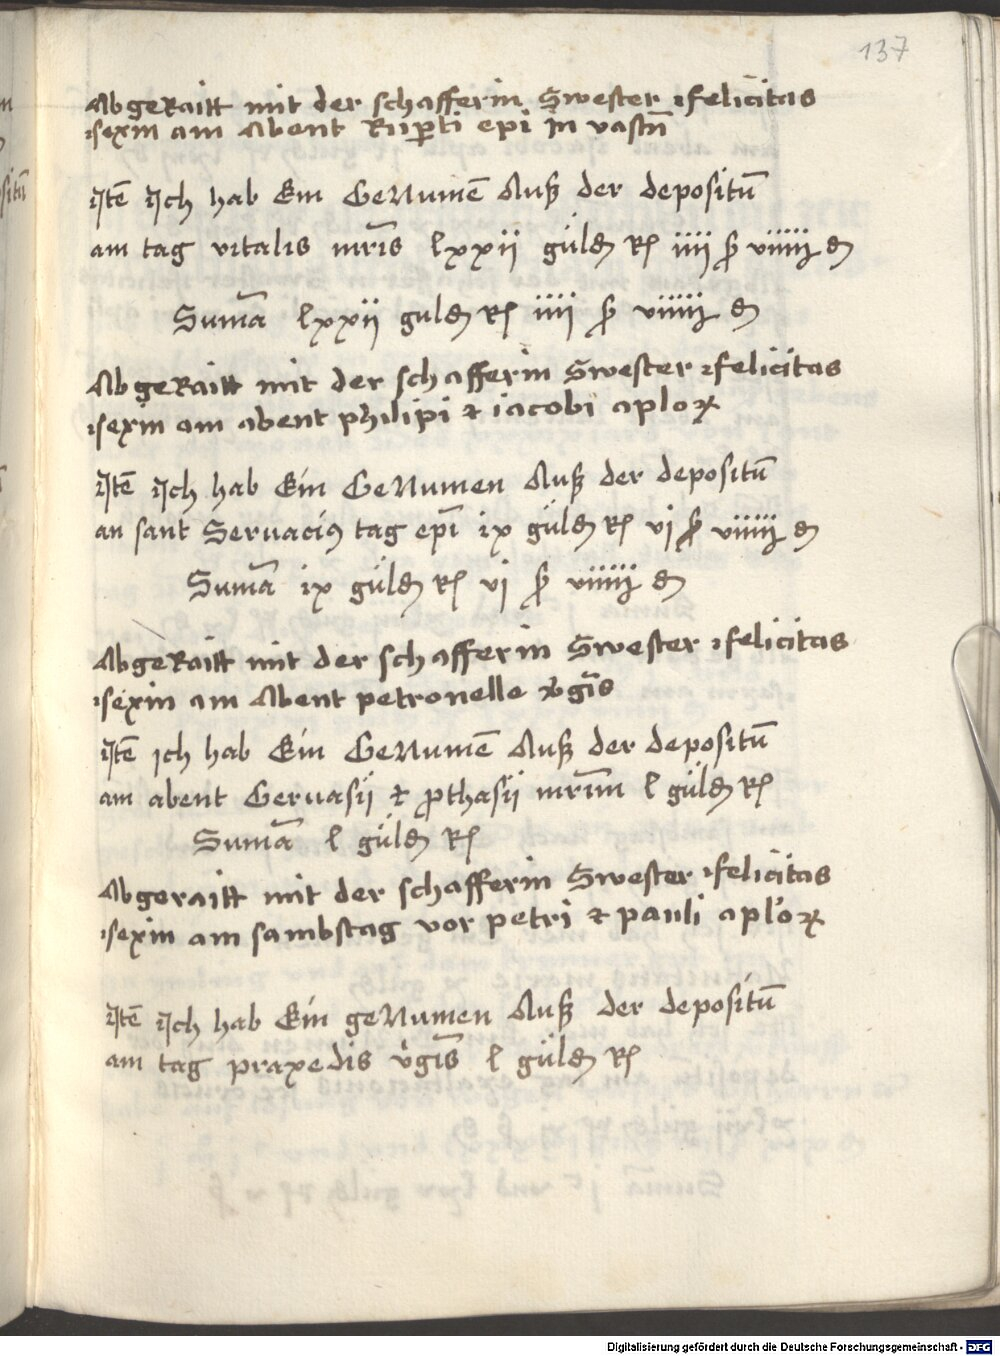 137
AbgeRaitt mit der schafferin Swester felicitas
sexin am Abent Rup̱ti ep̄i in vastn̄
Itē Ich hab Ein GeNumē Auß der depositū
am tag vitalis mr̄is lxxij güld R iiij ß viiij d
Sum̄a lxxij guld R iiij ß viiij d
AbgeRaitt mit der schafferin Swester felicitas
sexin am abent philipi et iacobi aploꝝ
Itē Ich hab Ein GeNumen Auß der depositū
an sant Seruaciꝰ tag ep̄i ix güld R vj ß viiij d
Sum̄a ix güld R vj ß viiij d
AbgeRaitt mit der schafferin Swester felicitas
sexin am Abent petronelle v̄gīs
Itē ich hab Ein GeNumē Auß der depositū
am abent Geruasij et ꝓthasij mr̄im l güld R
Sum̄a l güld R
Abgeraitt mit der schafferin Swester felicitas
sexin am sambstag vor petri et pauli aploꝝ
Itē Ich hab Ein geNumen Auß der depositū
am tag praxedis v̄gīs l güld R
Digitalisierung gefördert durch die Deutsche Forschungsgemeinschaft - DFG